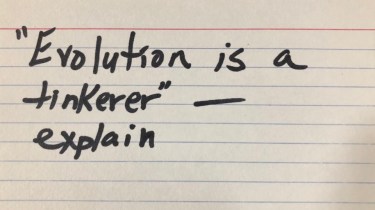 "Evolution is a
tinkerer" —
explain